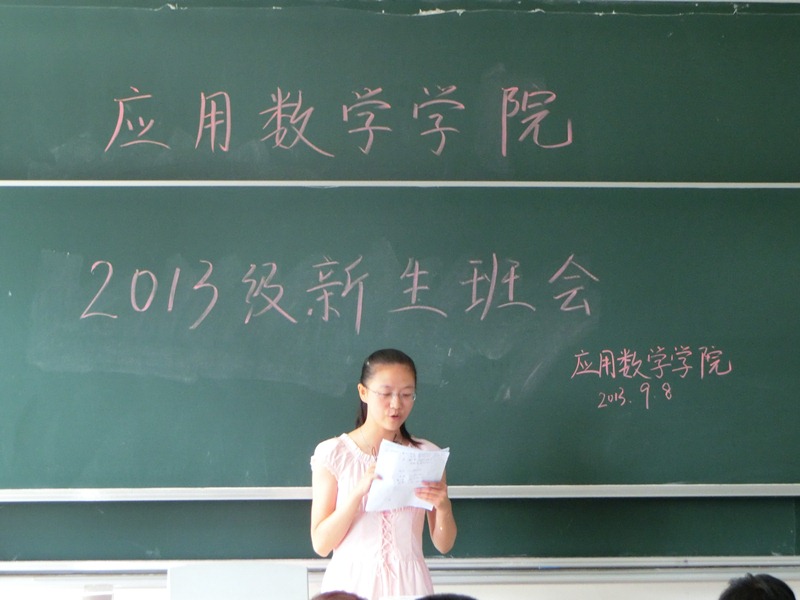 应用数学学院
2013级新生班会
应用数学学院
2013.9.8